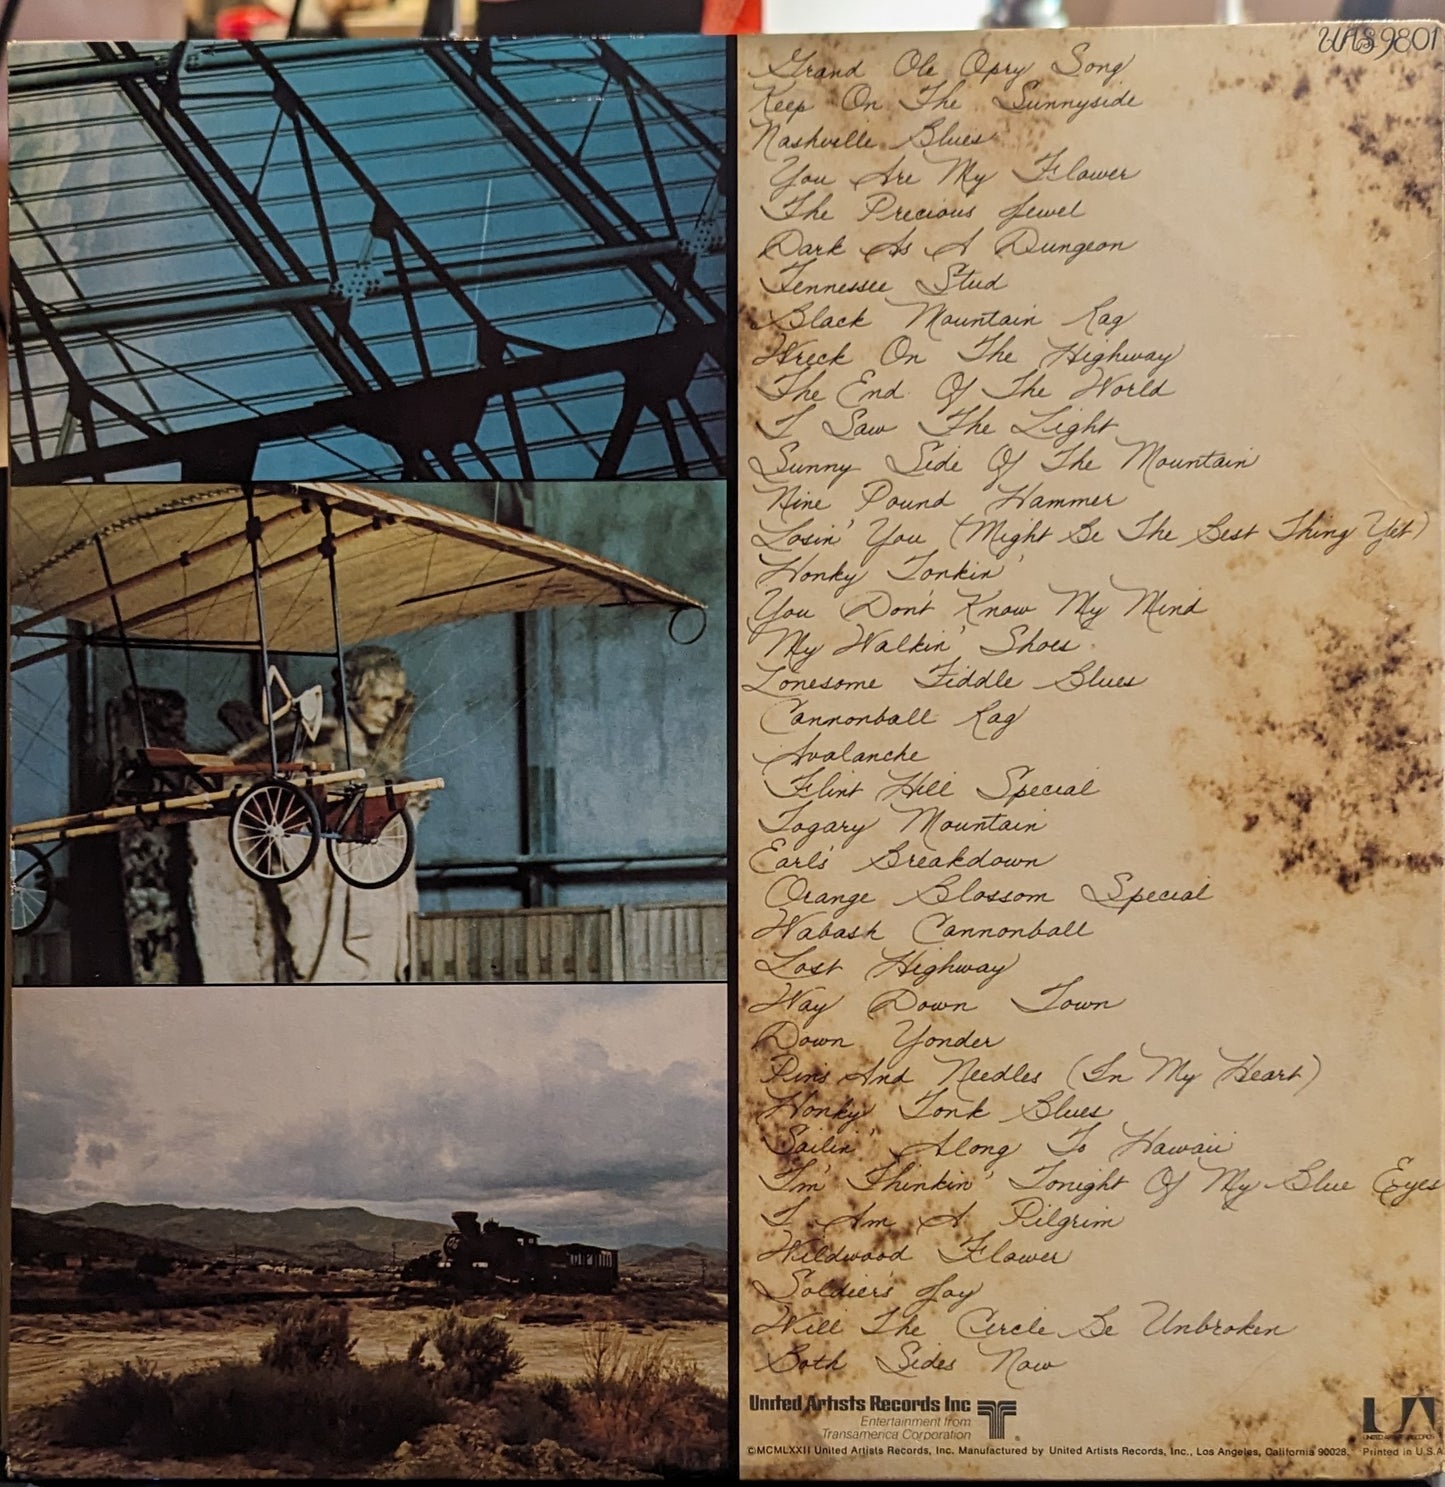 UAS 9801
Grand Ole Opry Song
Keep On The Sunnyside
Nashville Blues
You Are My Flower
The Precious Jewel
Dark As A Dungeon
Tennessee Stud
Black Mountain Rag
Wreck On The Highway
The End Of The World
I Saw The Light
Sunny Side Of The Mountain
Nine Pound Hammer
Losin' You (Might Be The Best Thing Yet)
Honky Tonkin'
You Don't Know My Mind
My Walkin' Shoes
Lonesome Fiddle Blues
Cannonball Rag
Avalanche
Flint Hill Special
Togary Mountain
Earl's Breakdown
Orange Blossom Special
Wabash Cannonball
Lost Highway
Way Down Town
Down Yonder
Pins And Needles (In My Heart)
Honky Tonk Blues
Sailin' Along To Hawaii
I'm Thinkin' Tonight Of My Blue Eyes
I Am A Pilgrim
Wildwood Flower
Soldier's Joy
Will The Circle Be Unbroken
Both Sides Now
United Artists Records Inc
Entertainment from
Transamerica Corporation
UA
UNITED ARTISTS RECORDS
©MCMLXXII United Artists Records, Inc. Manufactured by United Artists Records, Inc., Los Angeles, California 90028. Printed in U.S.A